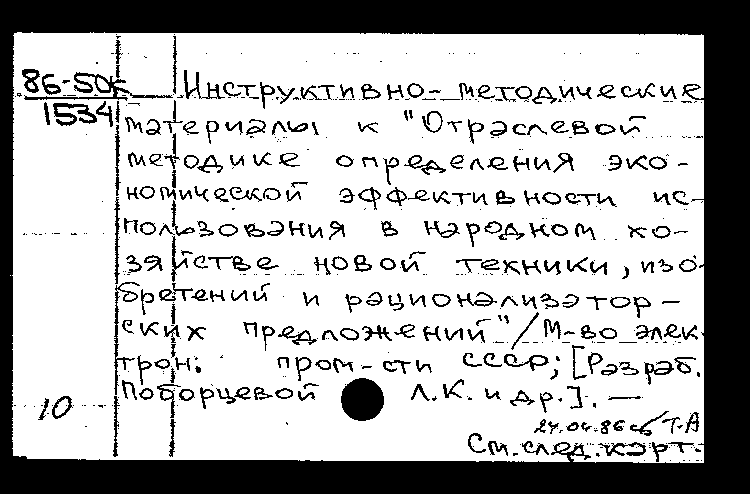 86-50к Инструктивно-методические
1534 материалы к "Отраслевой
методике определения эко-
номической эффективности ис-
пользования в народном хо-
зяйстве новой техники, изо-
бретений и рационализатор-
ских предложений"/М-во элек-
трон. пром-сти СССР; [Разраб.
Поборцевой Л.К. и др.]. —
10
24.04.86 Т.А
См. след. карт.